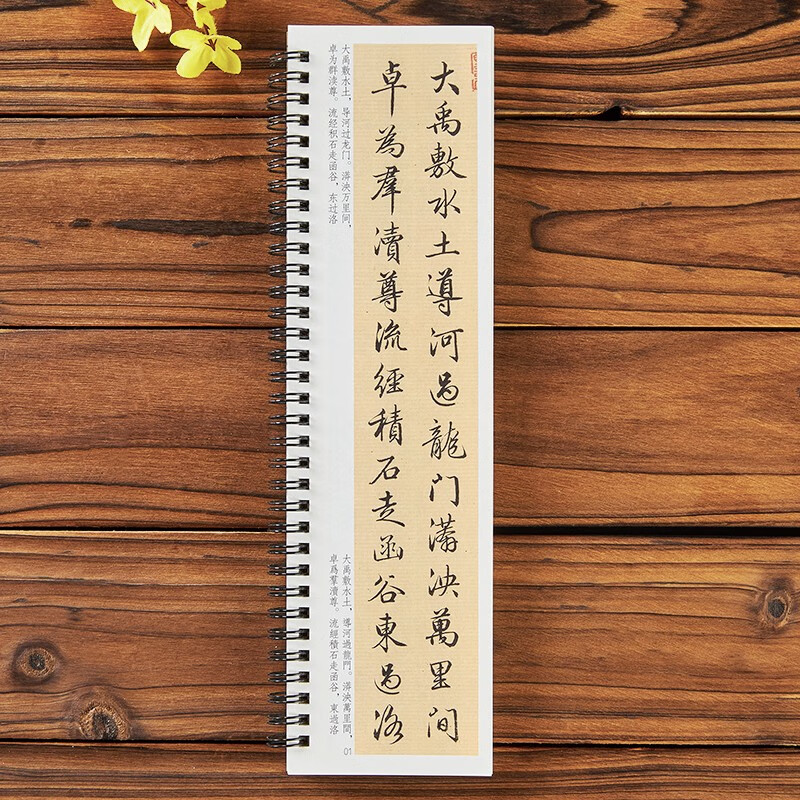 大禹敷水土導河過龍门漭泱萬里间
卓為羣瀆尊流經積石走函谷東過洛
大禹敷水土，导河过龙门。漭泱万里间，
卓为群渎尊。流经积石走函谷，东过洛
大禹敷水土，導河過龍門。漭泱萬里間，
卓爲羣瀆尊。流經積石走函谷，東過洛
01